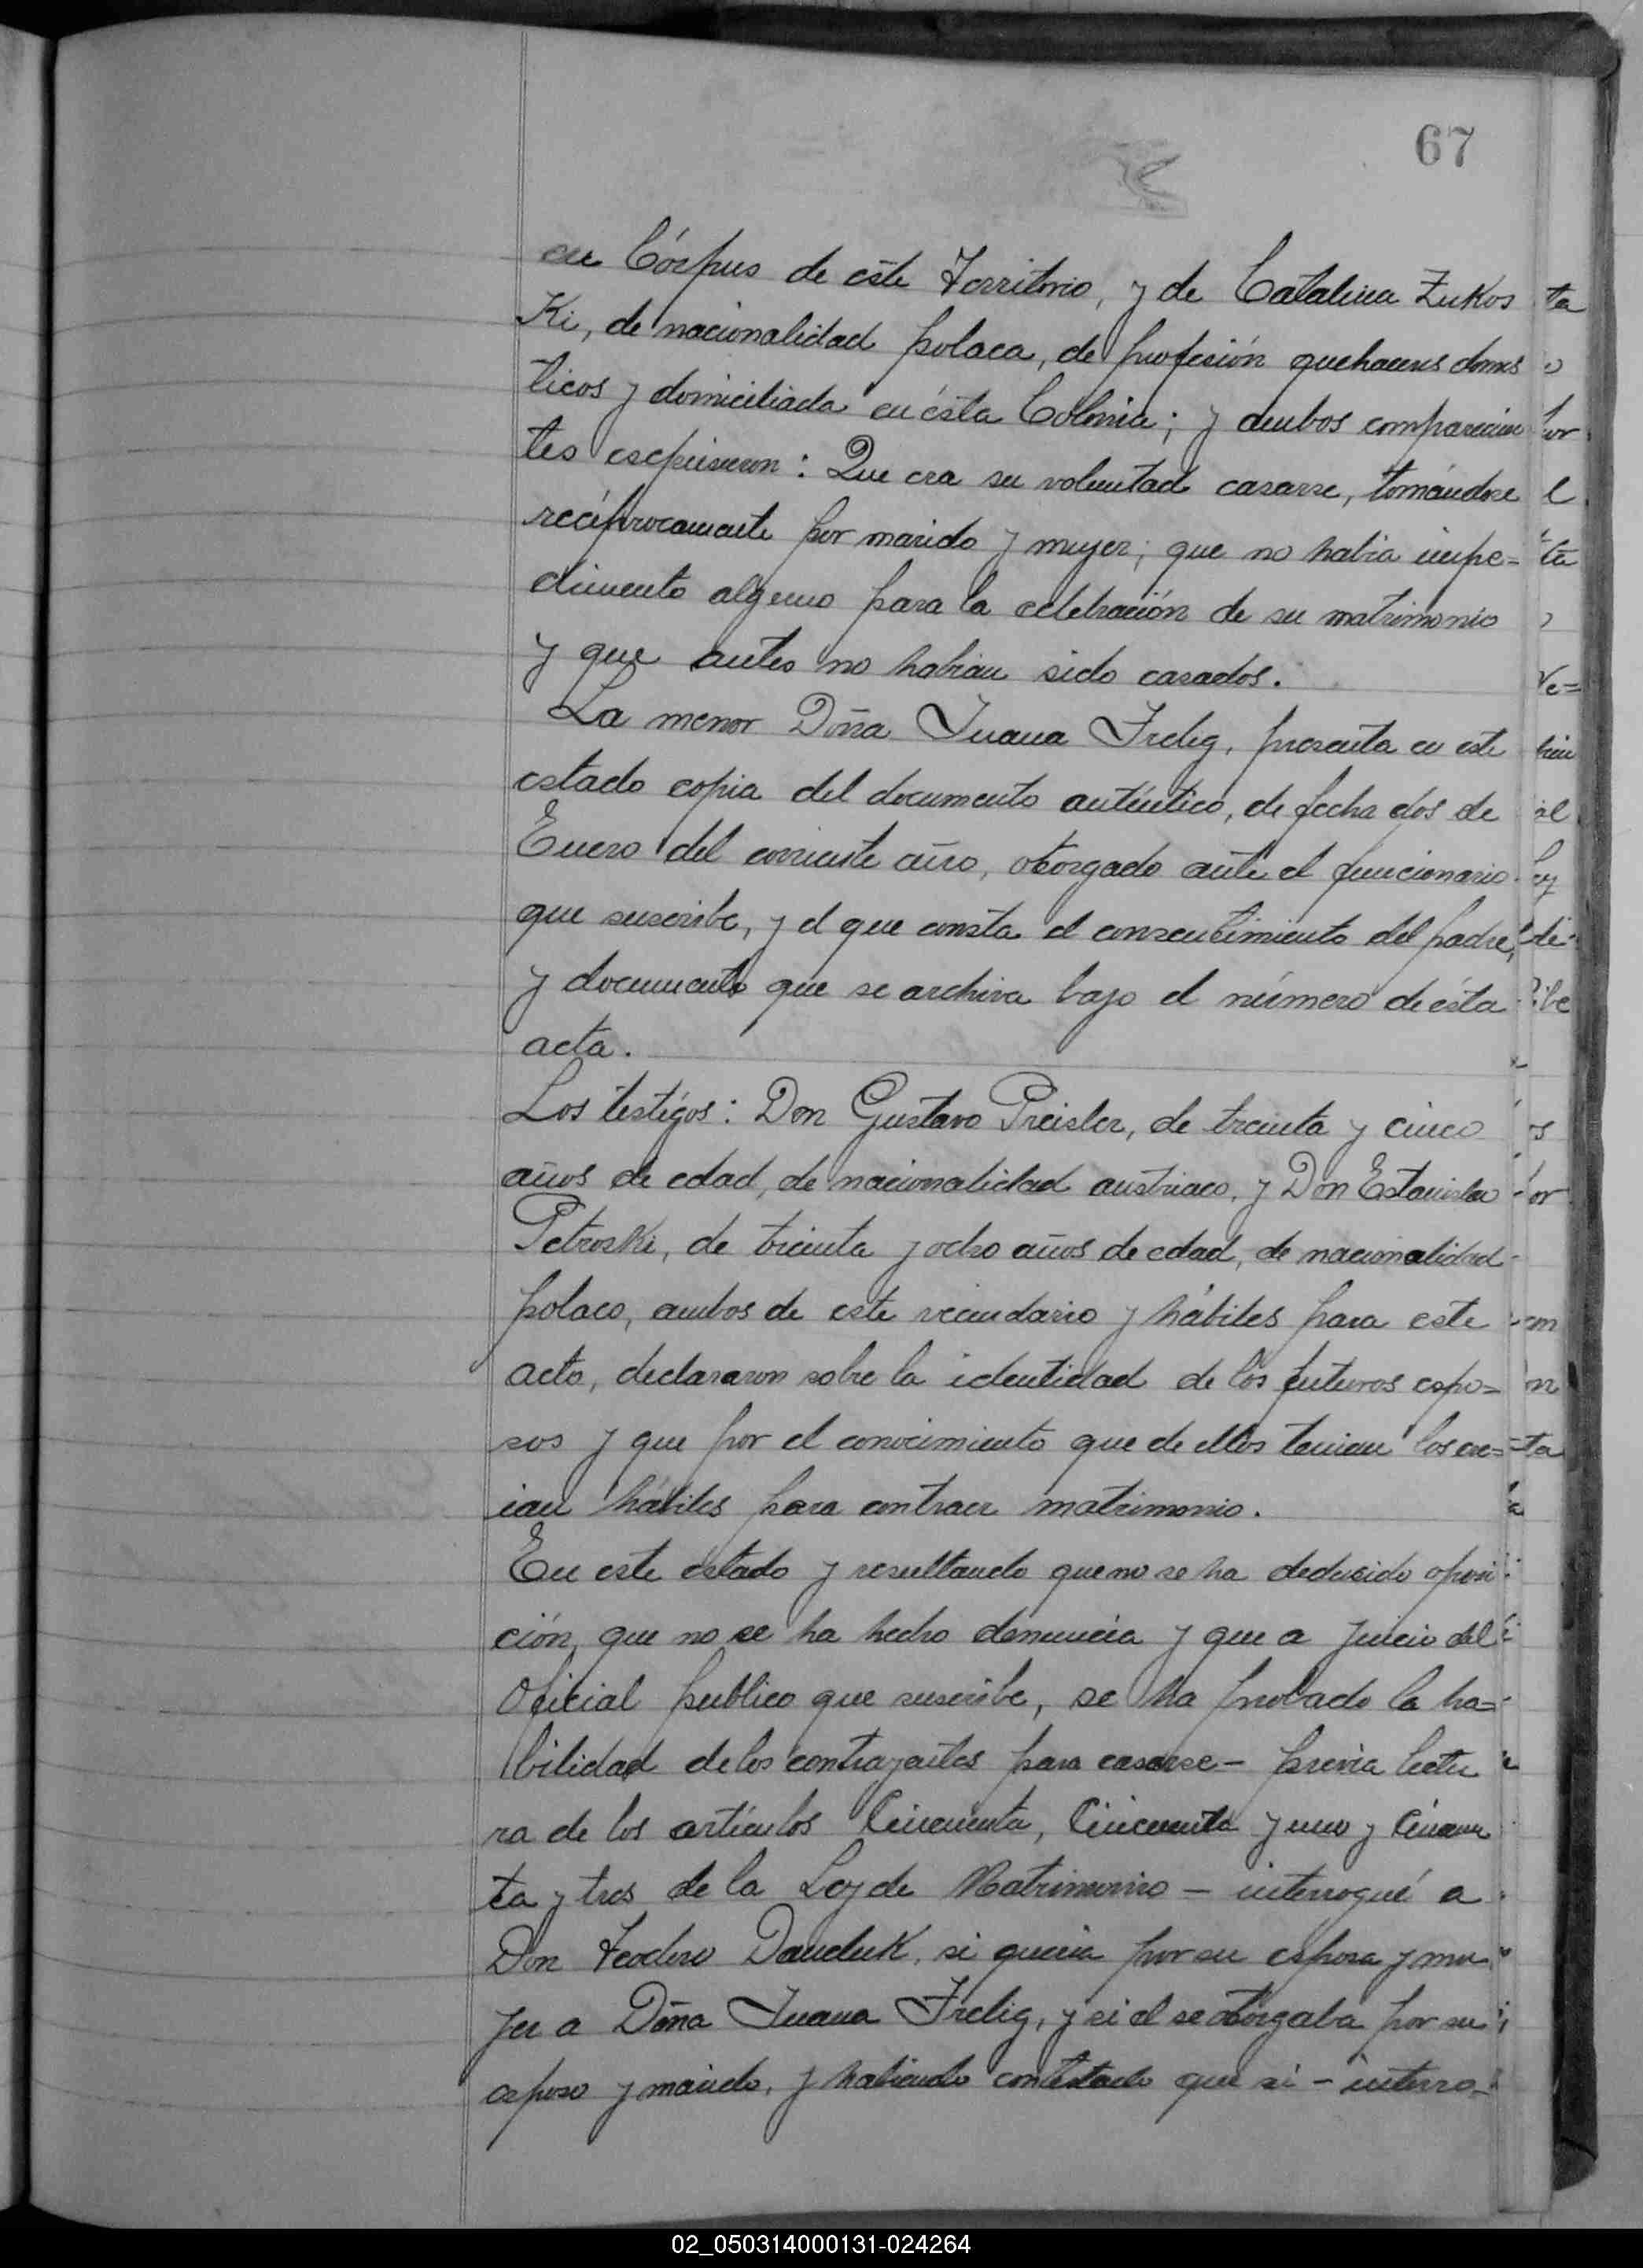 67
en Córpus de este Territorio, y de Catalina Zukos
Ki, de nacionalidad polaca, de profesión quehaceres domes
ticos y domiciliada en ésta Colonia; y ambos comparecien
tes expusieron: Que era su voluntad casarse, tomándose
recíprocamente por marido y mujer; que no habia impe=
dimento alguno para la celebración de su matrimonio
y que antes no habian sido casados.
La menor Doña Juana Frelig, presenta en este
estado copia del documento auténtico, de fecha dos de
Enero del corriente año, otorgado ante el funcionario
que suscribe, y el que consta el consentimiento del padre,
y documento que se archiva bajo el número de ésta
acta.
Los testigos: Don Gustavo Preisler, de treinta y cinco
años de edad, de nacionalidad austriaco, y Don Estanislao
Petroski, de treinta y ocho años de edad, de nacionalidad
polaco, ambos de este vecindario y hábiles para este
acto, declararon sobre la identidad de los futuros espo=
sos y que por el conocimiento que de ellos tenian los cre=
ian hábiles para contraer matrimonio.
En este estado y resultando que no se ha deducido oposi
ción, que no se ha hecho denuncia y que a juicio del
Oficial publico que suscribe, se ha probado la ha=
bilidad de los contrayentes para casarse - previa lectu
ra de los artículos Cincuenta, Cincuenta y uno y Cincuen
ta y tres de la Ley de Matrimonio - interrogué a
Don Teodoro Dauduk, si queria por su esposa y mu
jer a Doña Juana Frelig, y si el se otorgaba por su
esposo y marido, y habiendo contestado que si - interro-
02_050314000131-024264